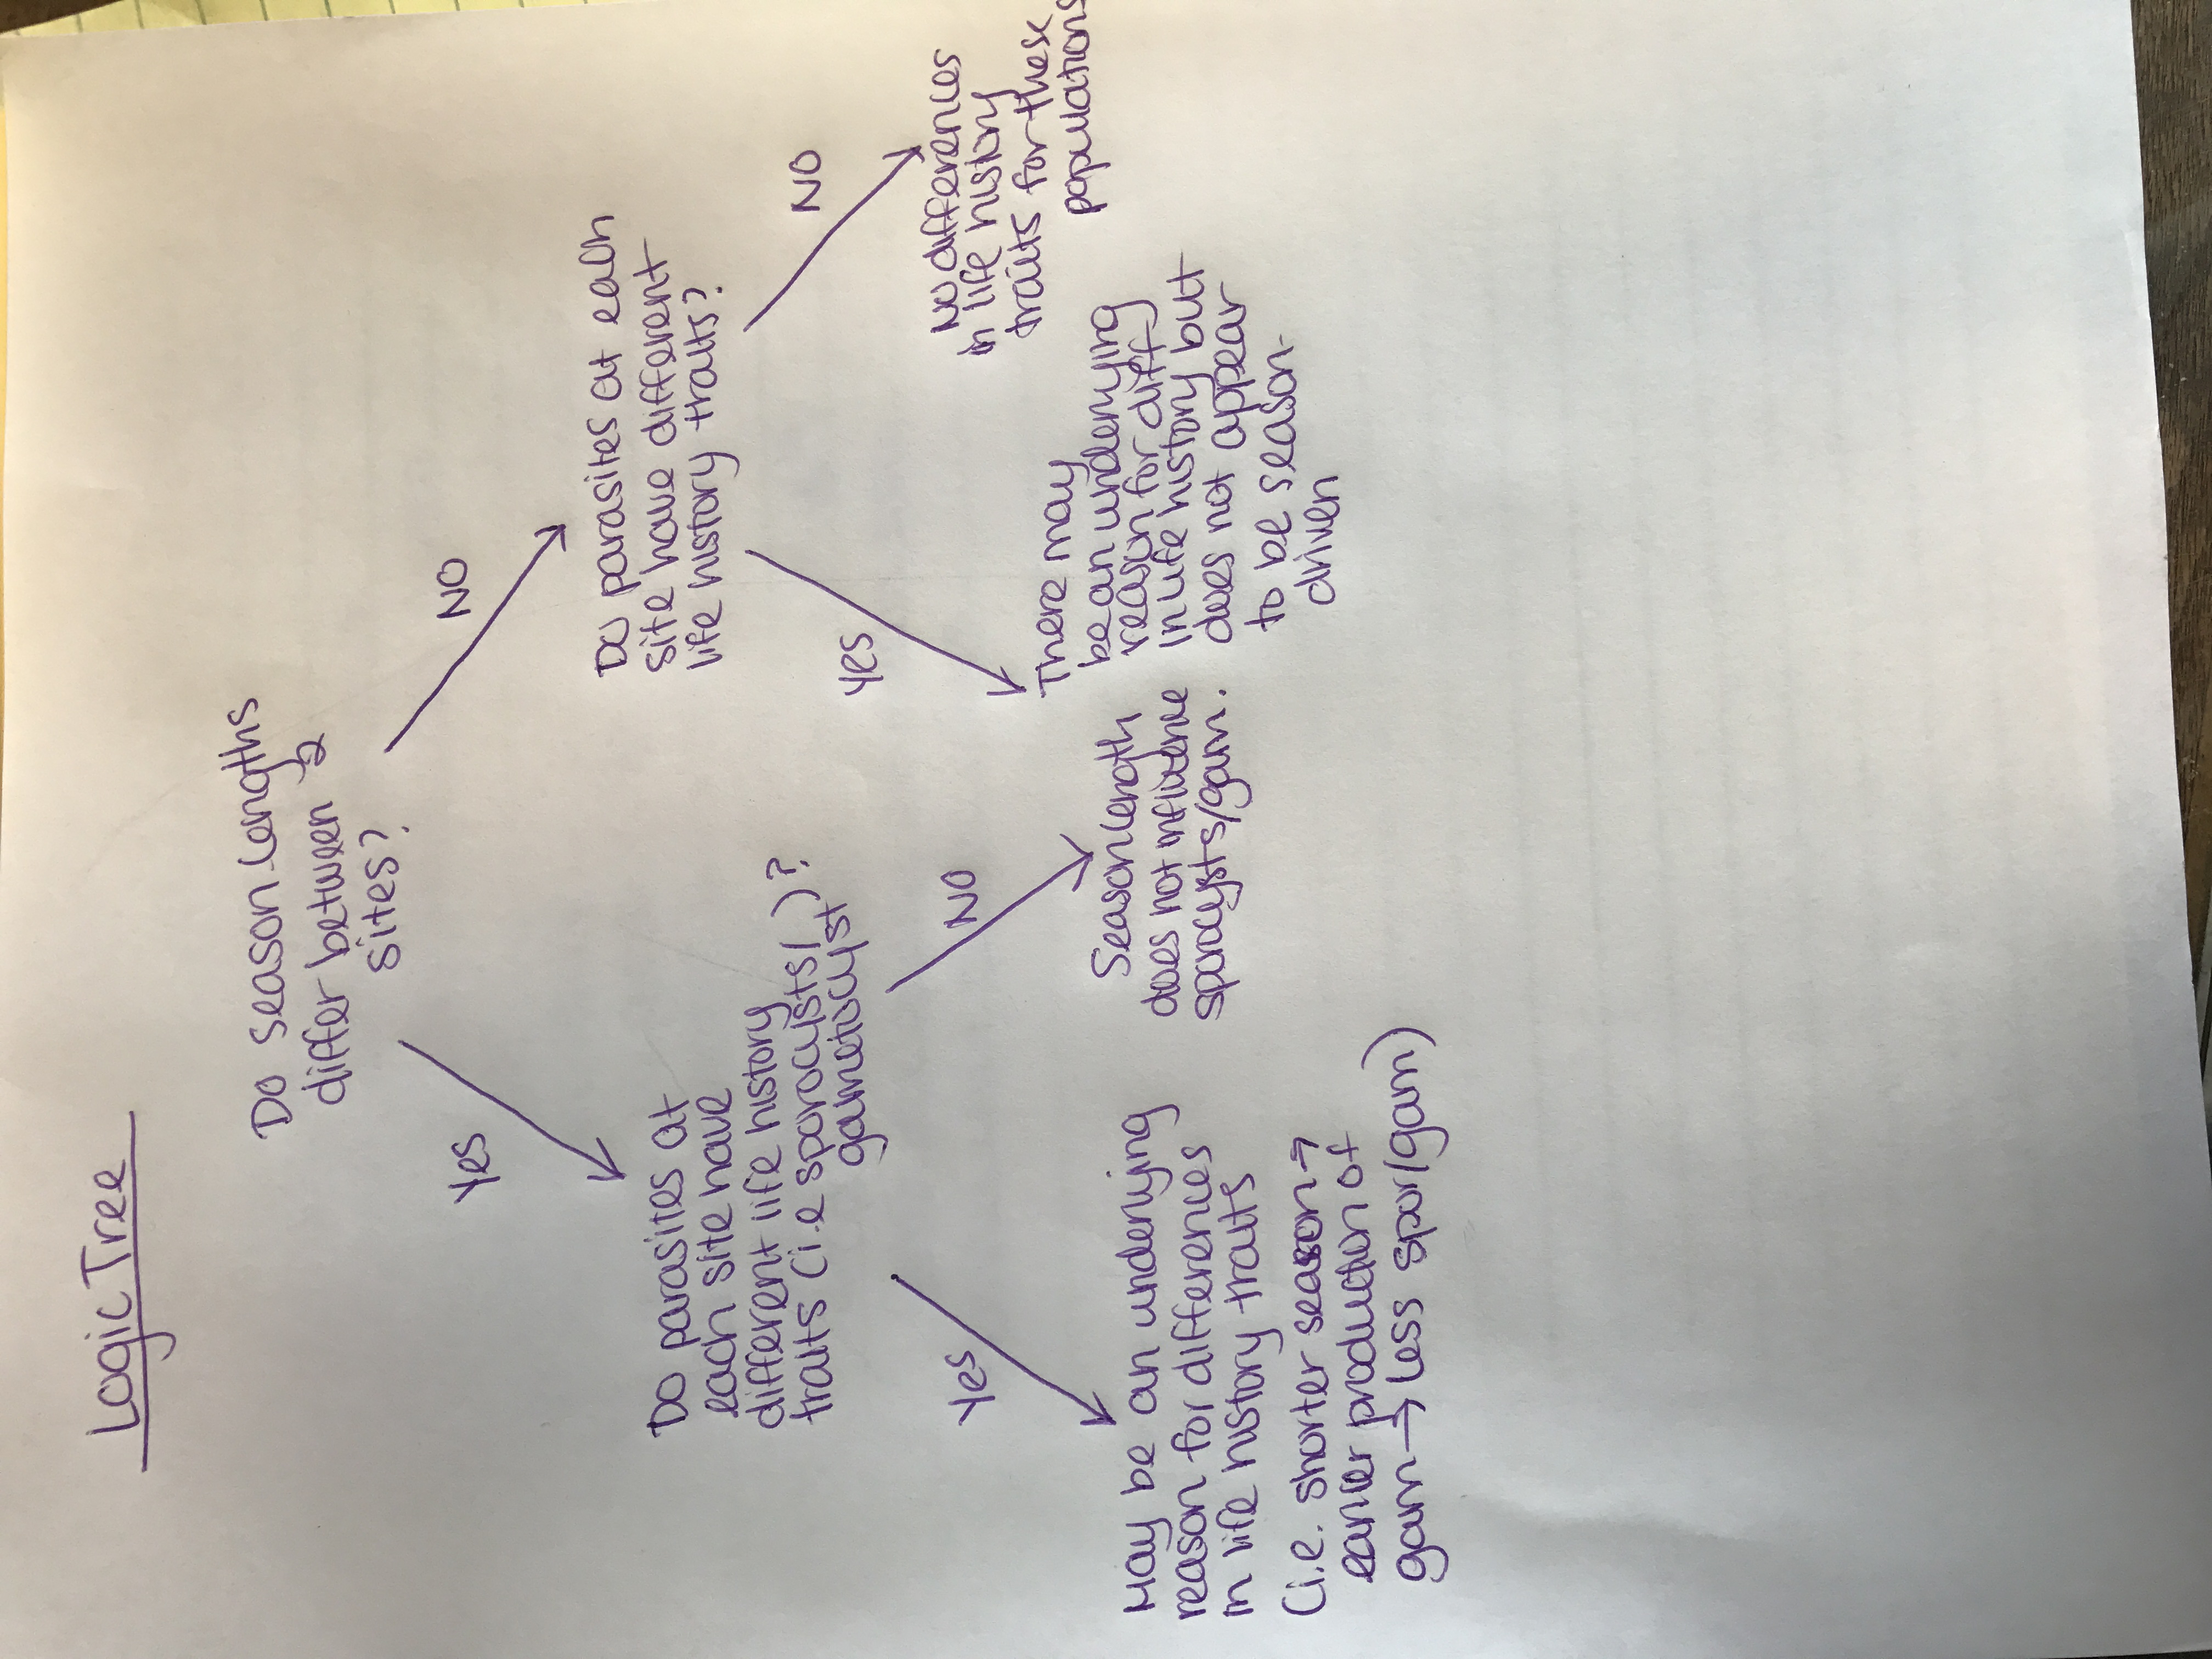 Logic Tree
Do season lengths
differ between 2
sites?
Yes
NO
Do parasites at
each site have
different life history
traits (i.e sporocysts/ )?
gametocyst
Do parasites at each
site have different
life history traits?
Yes
NO
Yes
NO
May be an underlying
reason for differences
in life history traits
(i.e. shorter season →
earlier production of
gam → less spor/gam)
Season length
does not influence
sporocysts/gam.
There may
be an underlying
reason for diff
in life history but
does not appear
to be season-
driven
No differences
in life history
traits for these
populations